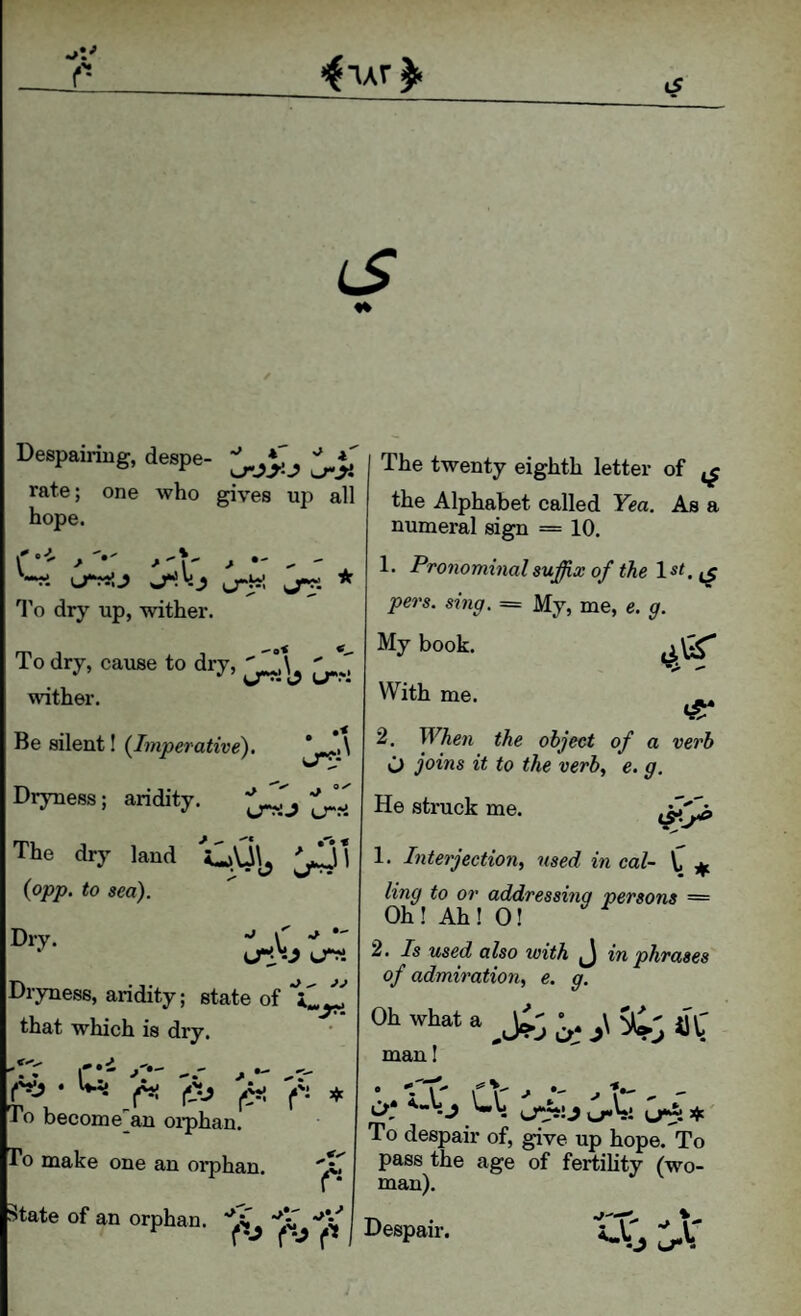 ي ﴿٦٨٢﴾ يتم
ي
The twenty eighth letter of ي
the Alphabet called Yea. As a
numeral sign = 10.
1. Pronominal suffix of the 1st. ي
pers. sing. = My, me, e. g.
My book. كِتَابِي
With me. مَعِي
2. When the object of a verb
ن joins it to the verb, e. g.
He struck me. ضَرَبَنِي
1. Interjection, used in cal- يَا *
ling to or addressing persons =
Oh! Ah! O!
2. Is used also with ل in phrases
of admiration, e. g.
Oh what a يَا لَكَ رَجُلًا أو مِن رَجُلٍ
man!
* يَئِسَ يَيْأَسُ ويَيْئِسُ يَأْسًا ويَآسَةً مِن
To despair of, give up hope. To
pass the age of fertility (wo-
man).
Despair. يَأْسٌ ويَآسَةٌ
Despairing, despe- يَؤُسٌ ويَؤُوسٌ
rate; one who gives up all
hope.
* يَبِسَ يَيْبَسُ ويَابَسُ ويَيْبِسُ يَبْسًا
To dry up, wither.
To dry, cause to dry, يَبَّسَ وأَيْبَسَ
wither.
Be silent! (Imperative). أَيْبِسْ
Dryness; aridity. يَبْسٌ ويَبَسٌ
The dry land أَلْيَبَسُ وأَلْيَابِسَةُ
(opp. to sea).
Dry. يَبِسٌ ويَابِسٌ
Dryness, aridity; state of يُبُوسَةٌ
that which is dry.
* يَتَمَ يَيْتِمُ ويَتِمَ يَيْتَمُ يُتْمًا · وتَيَتَّمَ
To become an orphan.
To make one an orphan. يَتَّمَ
State of an orphan. يُتْمٌ ويَتْمٌ ويَتَمٌ